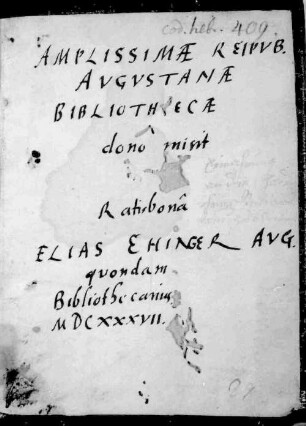 Cod. hebr. 409.
AMPLISSIMÆ REIPUB.
AUGUSTANÆ
BIBLIOTHECÆ
donô misit
Ratisbonâ
ELIAS EHINGER AUG.
quondam
Bibliothecarius
MDCXXXVII.